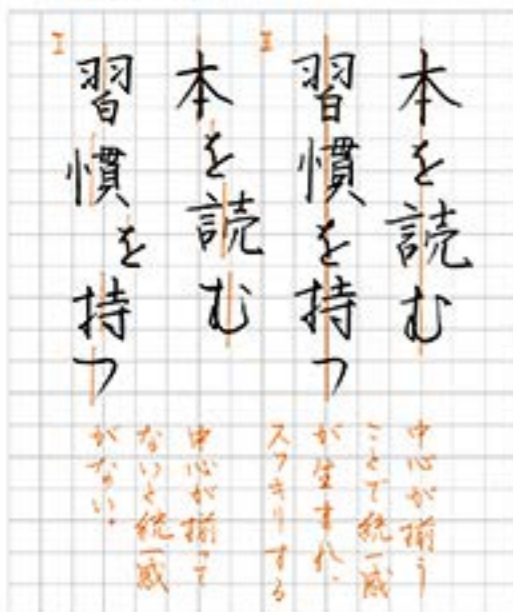 本を読む
習慣を持つ
Ⅱ
中心が揃う
ことで統一感
が生まれ、
スッキリする
本を読む
習慣を持つ
Ⅰ
中心が揃って
ないと統一感
がない。